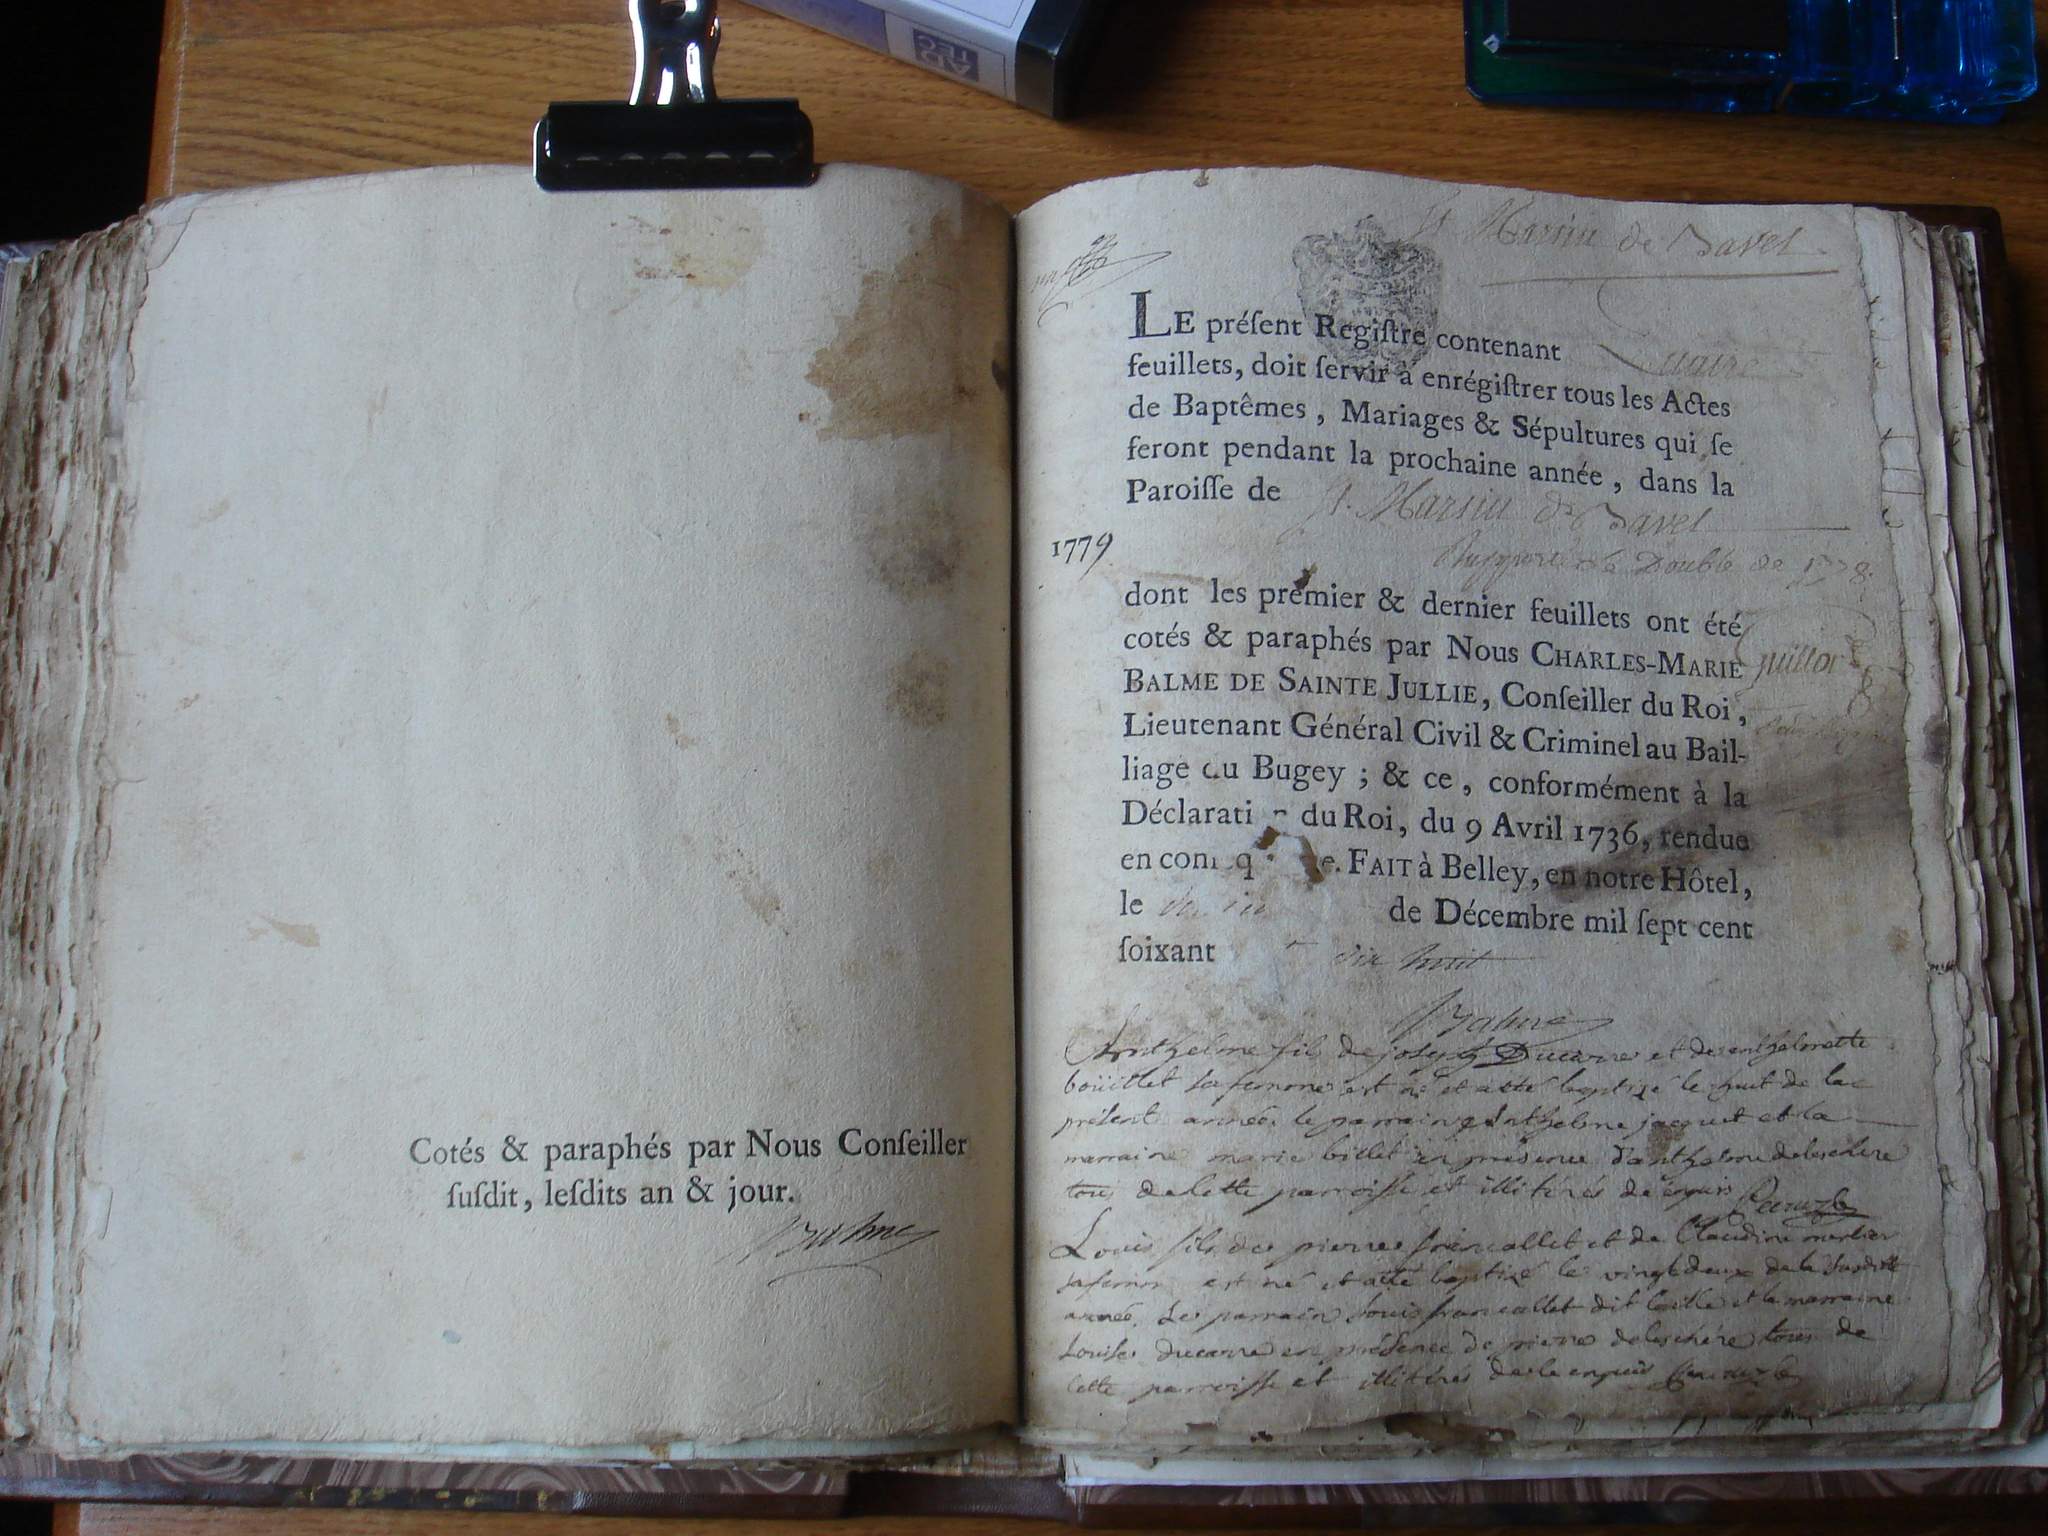 AD
TEC
Cotés & paraphés par Nous Conſeiller
ſuſdit, leſdits an & jour.
Balme
St Martin de Bavel
LE préſent Regiſtre contenant Quatre
feuillets, doit ſervir à enrégiſtrer tous les Actes
de Baptêmes, Mariages & Sépultures qui ſe
feront pendant la prochaine année, dans la
Paroiſſe de St. Martin de Bavel
1779
Double de 1778.
dont les premier & dernier feuillets ont été
cotés & paraphés par Nous CHARLES-MARIE
BALME DE SAINTE JULLIE, Conſeiller du Roi,
Lieutenant Général Civil & Criminel au Bail-
liage du Bugey ; & ce, conformément à la
Déclarati du Roi, du 9 Avril 1736, rendue
en con q e. FAIT à Belley, en notre Hôtel,
le de Décembre mil ſept cent
ſoixant dix huit
Balme
Anthelme fils de joseph Ducarre et de anthelmette
boüillet sa femme est né et a été baptizé le huit de la
présente année, le parrain anthelme jacquet et la
marraine marie billet en présence d'anthelme deleschere
tous de cette parroisse et illitérés de enquis
Louis fils de pierre francallet et de Claudine
sa femme est né et a été baptizé le vingt deux de la susditte
année. Le parrain Louis francallet dit et la marraine
Louise ducarre en présence de pierre deleschere tous de
cette parroisse et illitérés de ce enquis